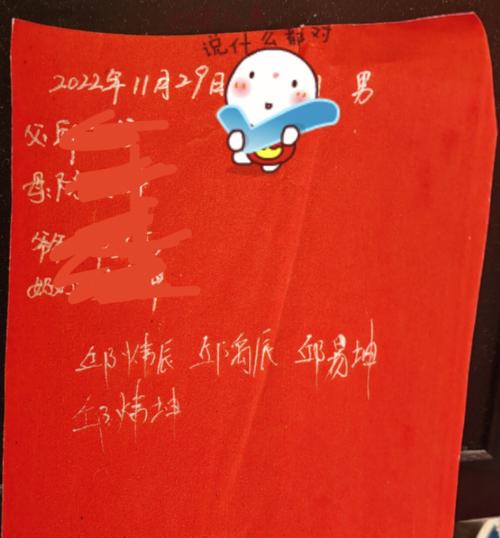 说什么都对
2022年11月29日 男
父:邱
母:陈
爷爷
奶奶
邱炜辰 邱禹辰 邱易坤
邱炜坤